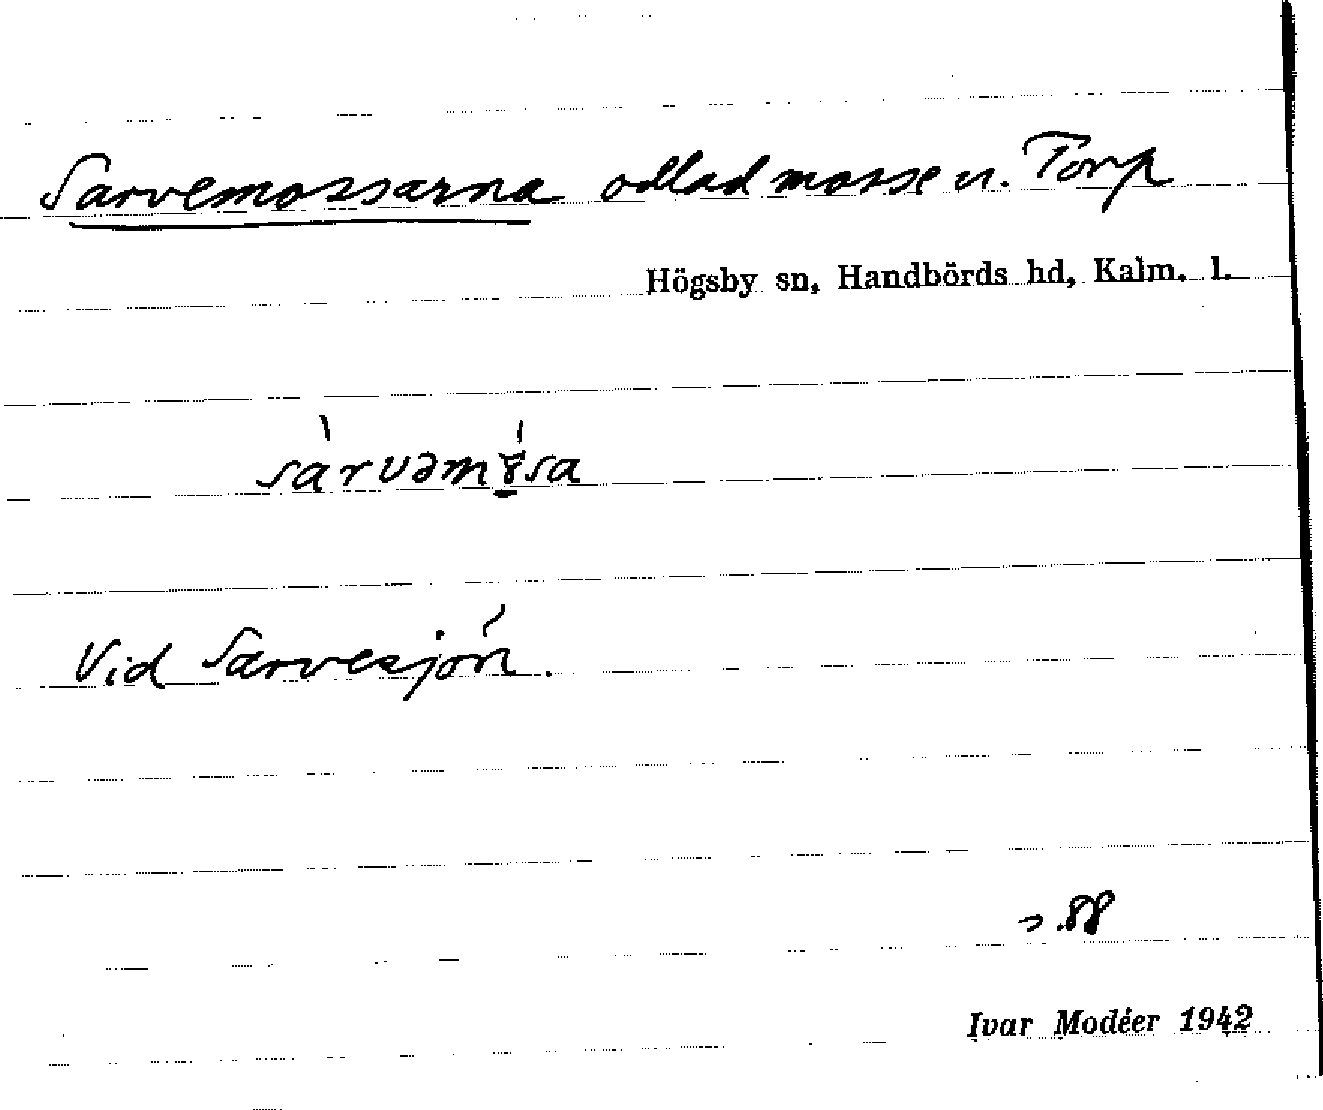 Sarvemossarna odlad mosse u. Torp
Högsby sn, Handbörds hd, Kalm. l.
Vid Sarvesjön.
s. 88
Ivar Modéer 1942